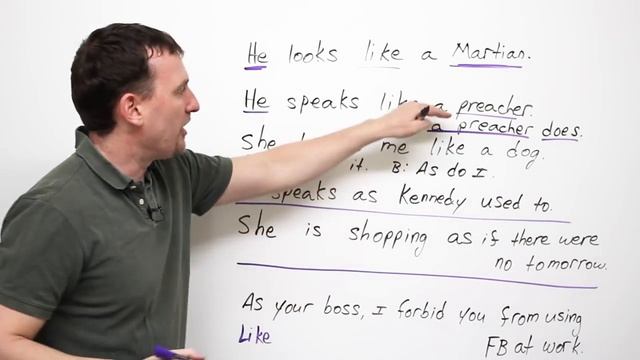 He looks like a Martian.
He speaks like a preacher.
a preacher does.
She me like a dog.
it. B: As do I.
speaks as Kennedy used to.
She is shopping as if there were
no tomorrow.
As your boss, I forbid you from using
Like FB at work.